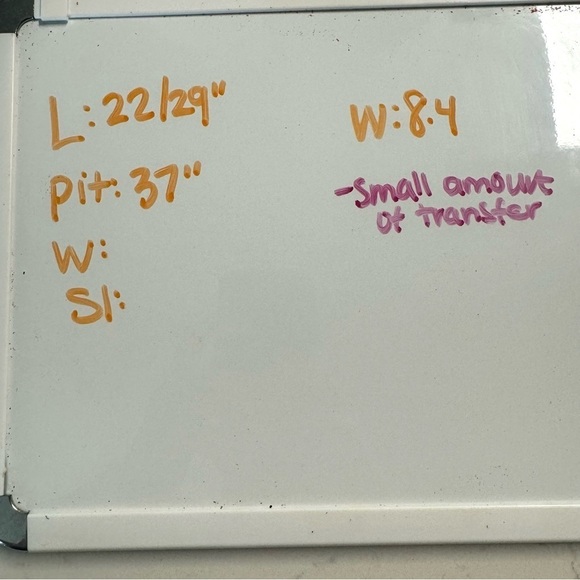 L: 22/29"
pit: 37"
W:
Sl:
W: 8.4
-Small amount
of transfer